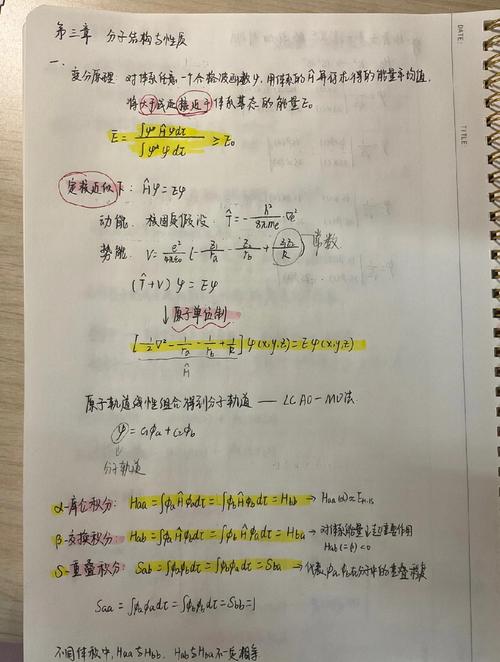 第三章 分子结构与性质
DATE:
一.
变分原理: 对体系任意一个合格波函数ψ, 用体系的Ĥ算符求得的能量平均值,
将大于或近接近于体系基态的能量E₀
Ē = ∫ψ*Ĥψdτ / ∫ψ*ψdτ ≥ E₀
TITLE:
定核近似下: Ĥψ=Eψ
动能. 核固定假设: T̂ = - h²/8π²me ∇²
势能. V = e²/4πε₀ (- Z₁/ra - Z₂/rb + Z₁Z₂/R) 常数
(T̂+V)ψ = Eψ
↓原子单位制
[-½∇² - 1/ra - 1/rb + 1/R]ψ(x,y,z)=Eψ(x,y,z)
Ĥ
原子轨道线性组合得到分子轨道 — LCAO-MO法.
ψ = c₁φa + c₂φb
↓
分子轨道
α-库仑积分: Haa=∫φaĤφadτ=∫φbĤφbdτ=Hbb → Haa(α)≈E H,1s
β-交换积分: Hab=∫φaĤφbdτ=∫φbĤφadτ=Hba → 对体系能量↓起重要作用
Hab(=β)<0
S-重叠积分: Sab=∫φaφbdτ=∫φbφadτ=Sba → 代表φa,φb在分子中的重叠程度
Saa=∫φaφadτ=∫φbφbdτ=Sbb=1
不同体系中, Haa与Hbb. Hab与Hba不一定相等